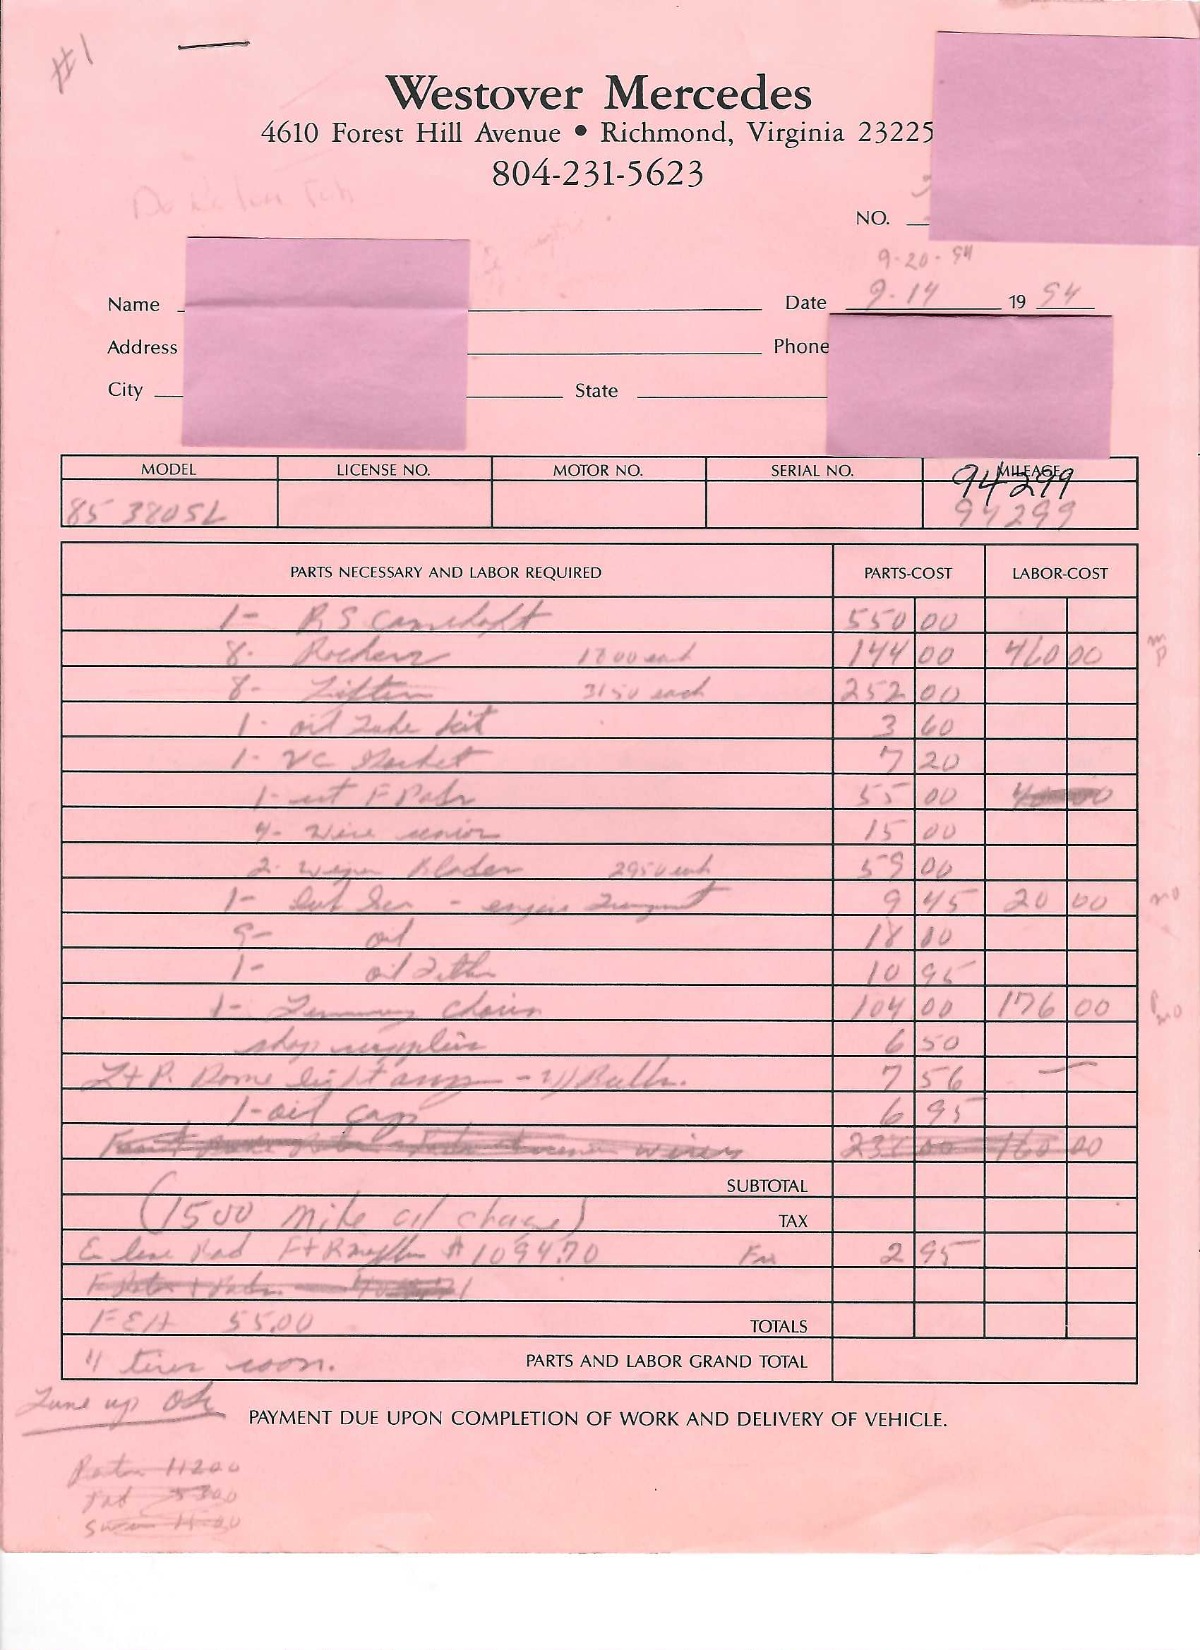 #1
Westover Mercedes
4610 Forest Hill Avenue • Richmond, Virginia 23225
804-231-5623
NO.
9-20-94
Name Date 9-14 19 94
Address Phone
City State
MODEL LICENSE NO. MOTOR NO. SERIAL NO. MILEAGE
94299
85 380SL 94299
PARTS NECESSARY AND LABOR REQUIRED PARTS-COST LABOR-COST
1- RS Camshaft 550 00
8- Rockers 1800 each 144 00 460 00
8- Lifters 3150 each 252 00
1- oil tube kit 3 60
1- VC Gasket 7 20
1- set F Pads 55 00
4- Wire 15 00
2- Wiper Blades 2950 each 59 00
1- 9 45 20 00
9- oil 18 00
1- oil filter 10 95
1- chain 104 00 176 00
shop supplies 6 50
Dome light - w/ Bulb. 7 56
1- oil cap 6 95
wires 237 00 160 00
SUBTOTAL
(1500 mile oil change) TAX
#1094.70 2 95
F
FEA 55.00 TOTALS
4 tires soon. PARTS AND LABOR GRAND TOTAL
Tune up Ok
PAYMENT DUE UPON COMPLETION OF WORK AND DELIVERY OF VEHICLE.